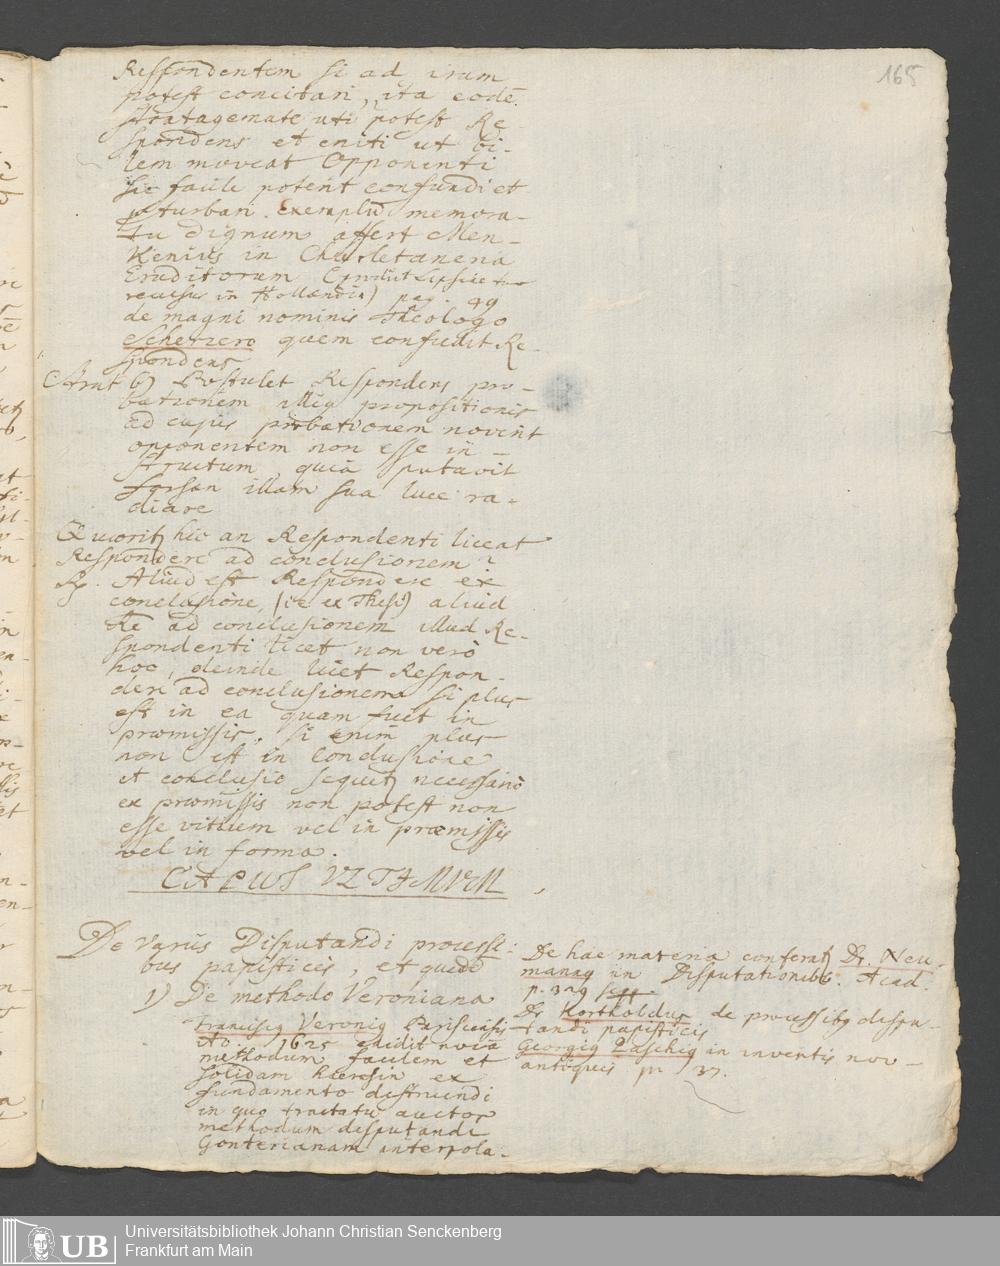 168
Respondentem si ad iram
potest concitari, ita eodē
stratagemate uti potest Re-
spondens et eniti ut bi-
lem moveat Opponenti
sic facile poterit confundi et
turbari. Exemplū memora-
tu dignum affert Men-
kenius in Charletaneria
Eruditorum (prodiit Lipsiae
recusus in Hollandia) pag. 49
de magni nominis Theologo
Scherzero quem confudit Re-
spondens
6) Postulet Respondens pro-
bationem illiq propositionis
ad cujus probationem noverit
opponentem non esse in-
structum, quia putavit
forsan illam sua luce ra-
diare
Quaerit hic an Respondenti liceat
Respondere ad conclusionem?
R. Aliud est Respondere ex
conclusione, (i.e. ex Thesi) aliud
Re ad conclusionem illud Re-
spondenti licet non verò
hoc, deinde licet Respon-
dere ad conclusionem si plus
est in ea quam fuit in
praemissis, si enim plus
non est in Conclusione
et conclusio sequit necessariò
ex praemissis non potest non
esse vitium vel in praemissis
vel in forma.
CAPUT VLTIMVM
De variis Disputandi processi-
bus papisticis, et quidē
1) De methodo Veroniana
Franciscq Veroniq Parisiensis
Ao. 1625 edidit novā
methodum facilem et
solidam haeresin ex
fundamento destruendi
in quo tractatu auctor
methodum disputandi
Gonterianam interpola-
De hac materia conferat Dr. Neu-
manq in Disputationibq. Acad.
p. 329 seqq.
Dr Kortholdus de processibq dispu-
tandi papisticis
Georgiq Paschiq in inventis nov-
antiquis p. 37.
UB
Universitätsbibliothek Johann Christian Senckenberg
Frankfurt am Main